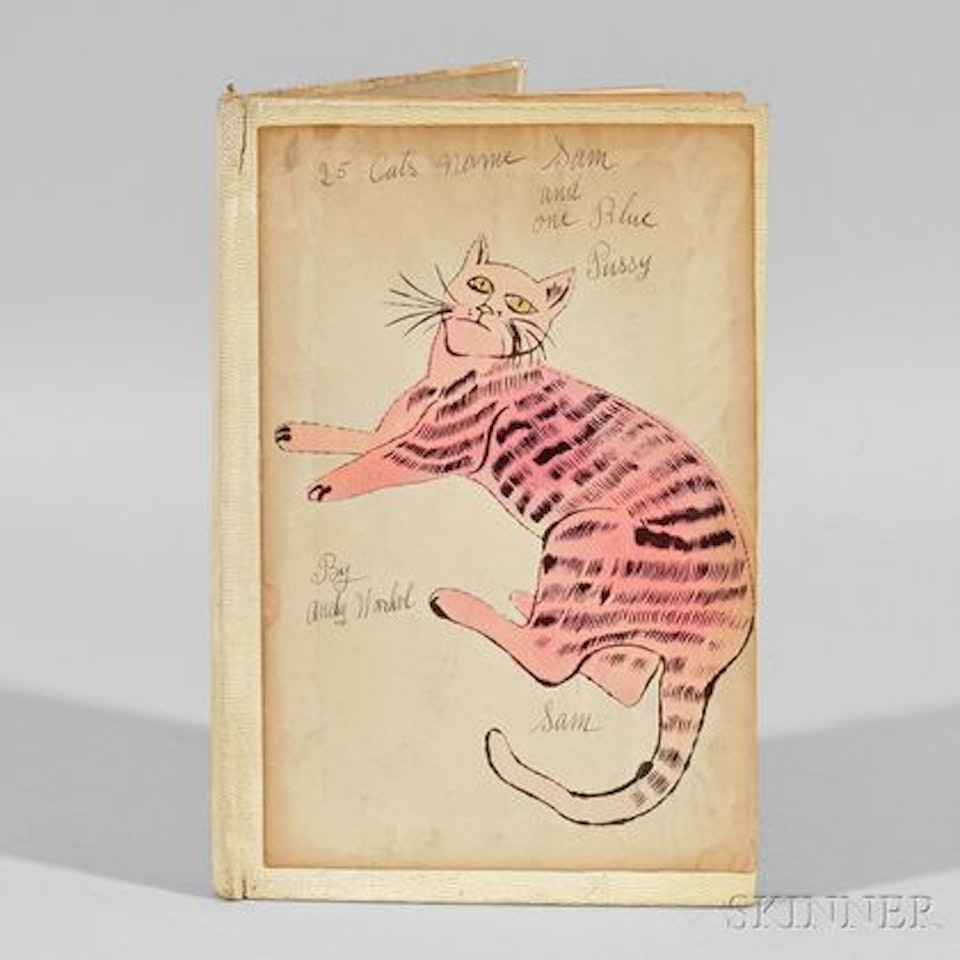 25 Cats name Sam
and
one Blue
Pussy
By
Andy Warhol
Sam
SKINNER